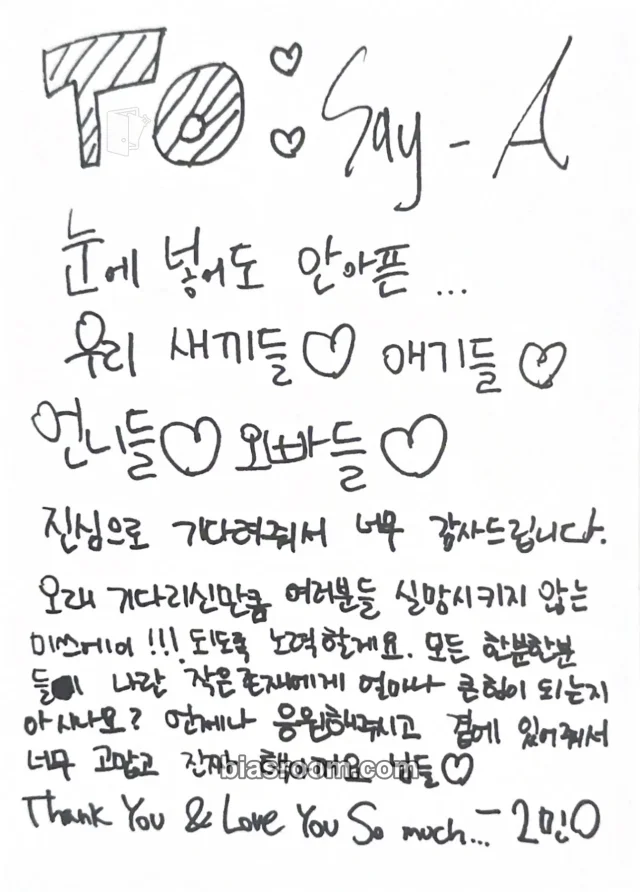 TO: Say-A
눈에 넣어도 안아픈 ...
우리 새끼들♡ 애기들♡
언니들♡ 오빠들♡
진심으로 기다려줘서 너무 감사드립니다.
오래 기다리신만큼 여러분들 실망시키지 않는
미쓰에이!!! 되도록 노력할게요. 모든 한분한분
들이 나란 작은존재에게 얼마나 큰힘이 되는지
아시나요? 언제나 응원해주시고 곁에 있어줘서
너무 고맙고 진짜 님들♡
biasroom.com
Thank You & Love You So much... - 2민O